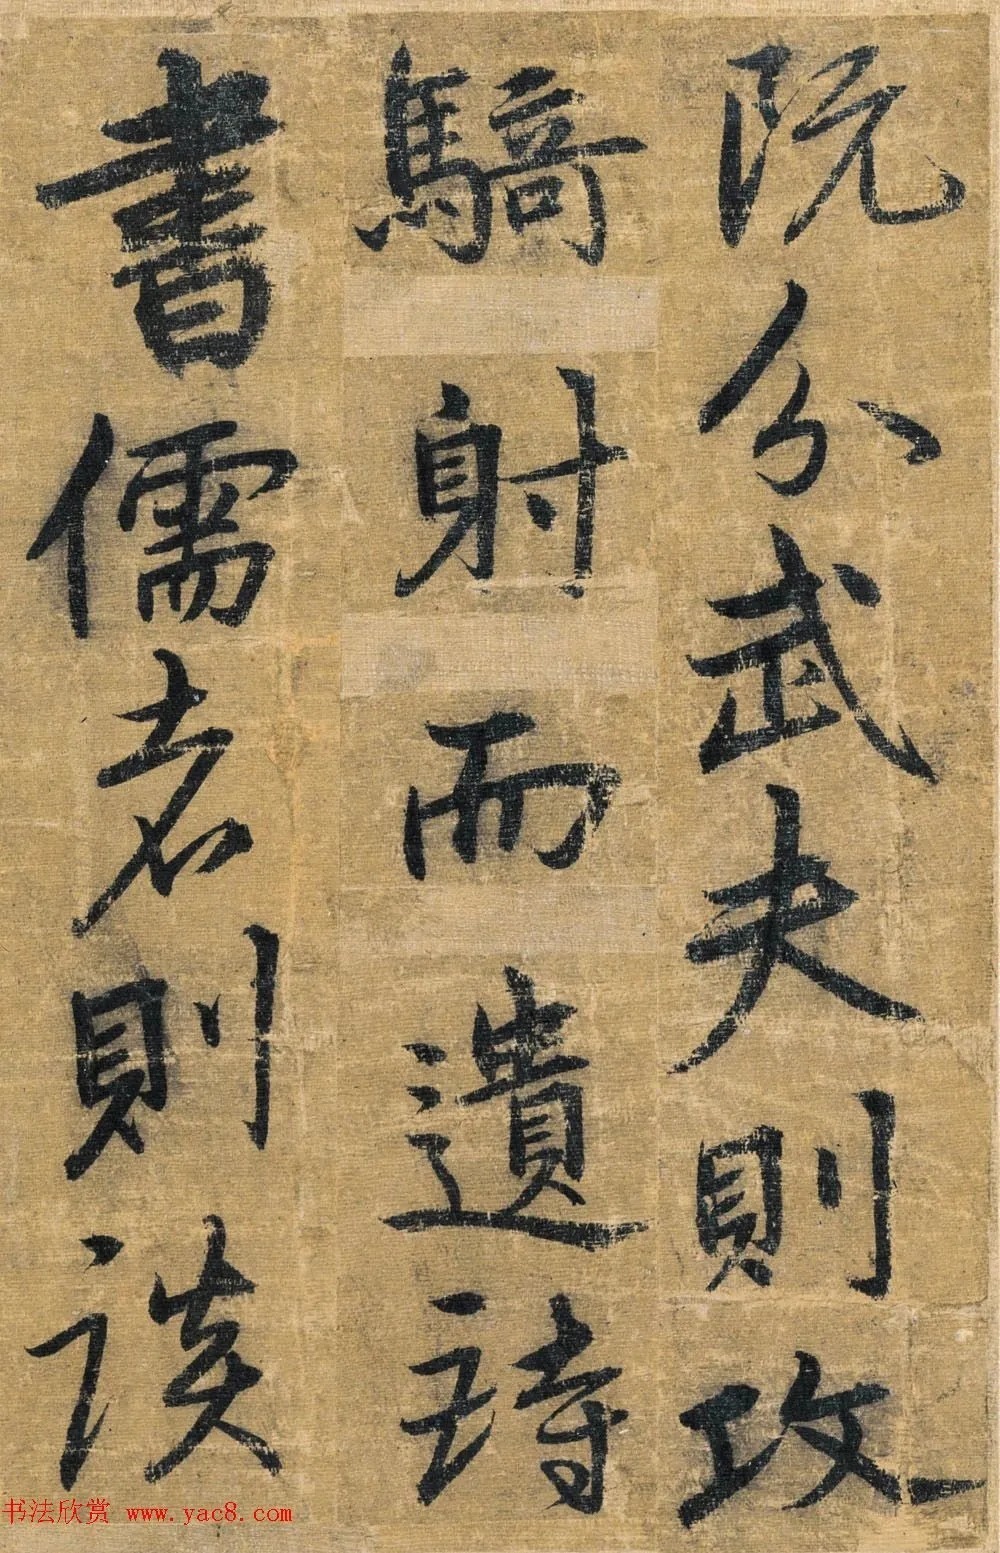 既分武夫則攻
騎射而遺詩
書儒者則談
书法欣赏 www.yac8.com